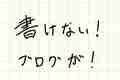 書けない!
ブログが!